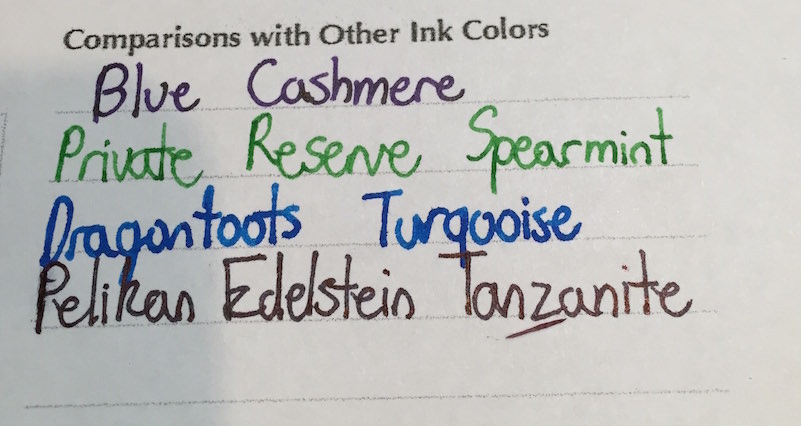 Comparisons with Other Ink Colors
Blue Cashmere
Private Reserve Spearmint
Dragontoots Turqooise
Pelikan Edelstein Tanzanite